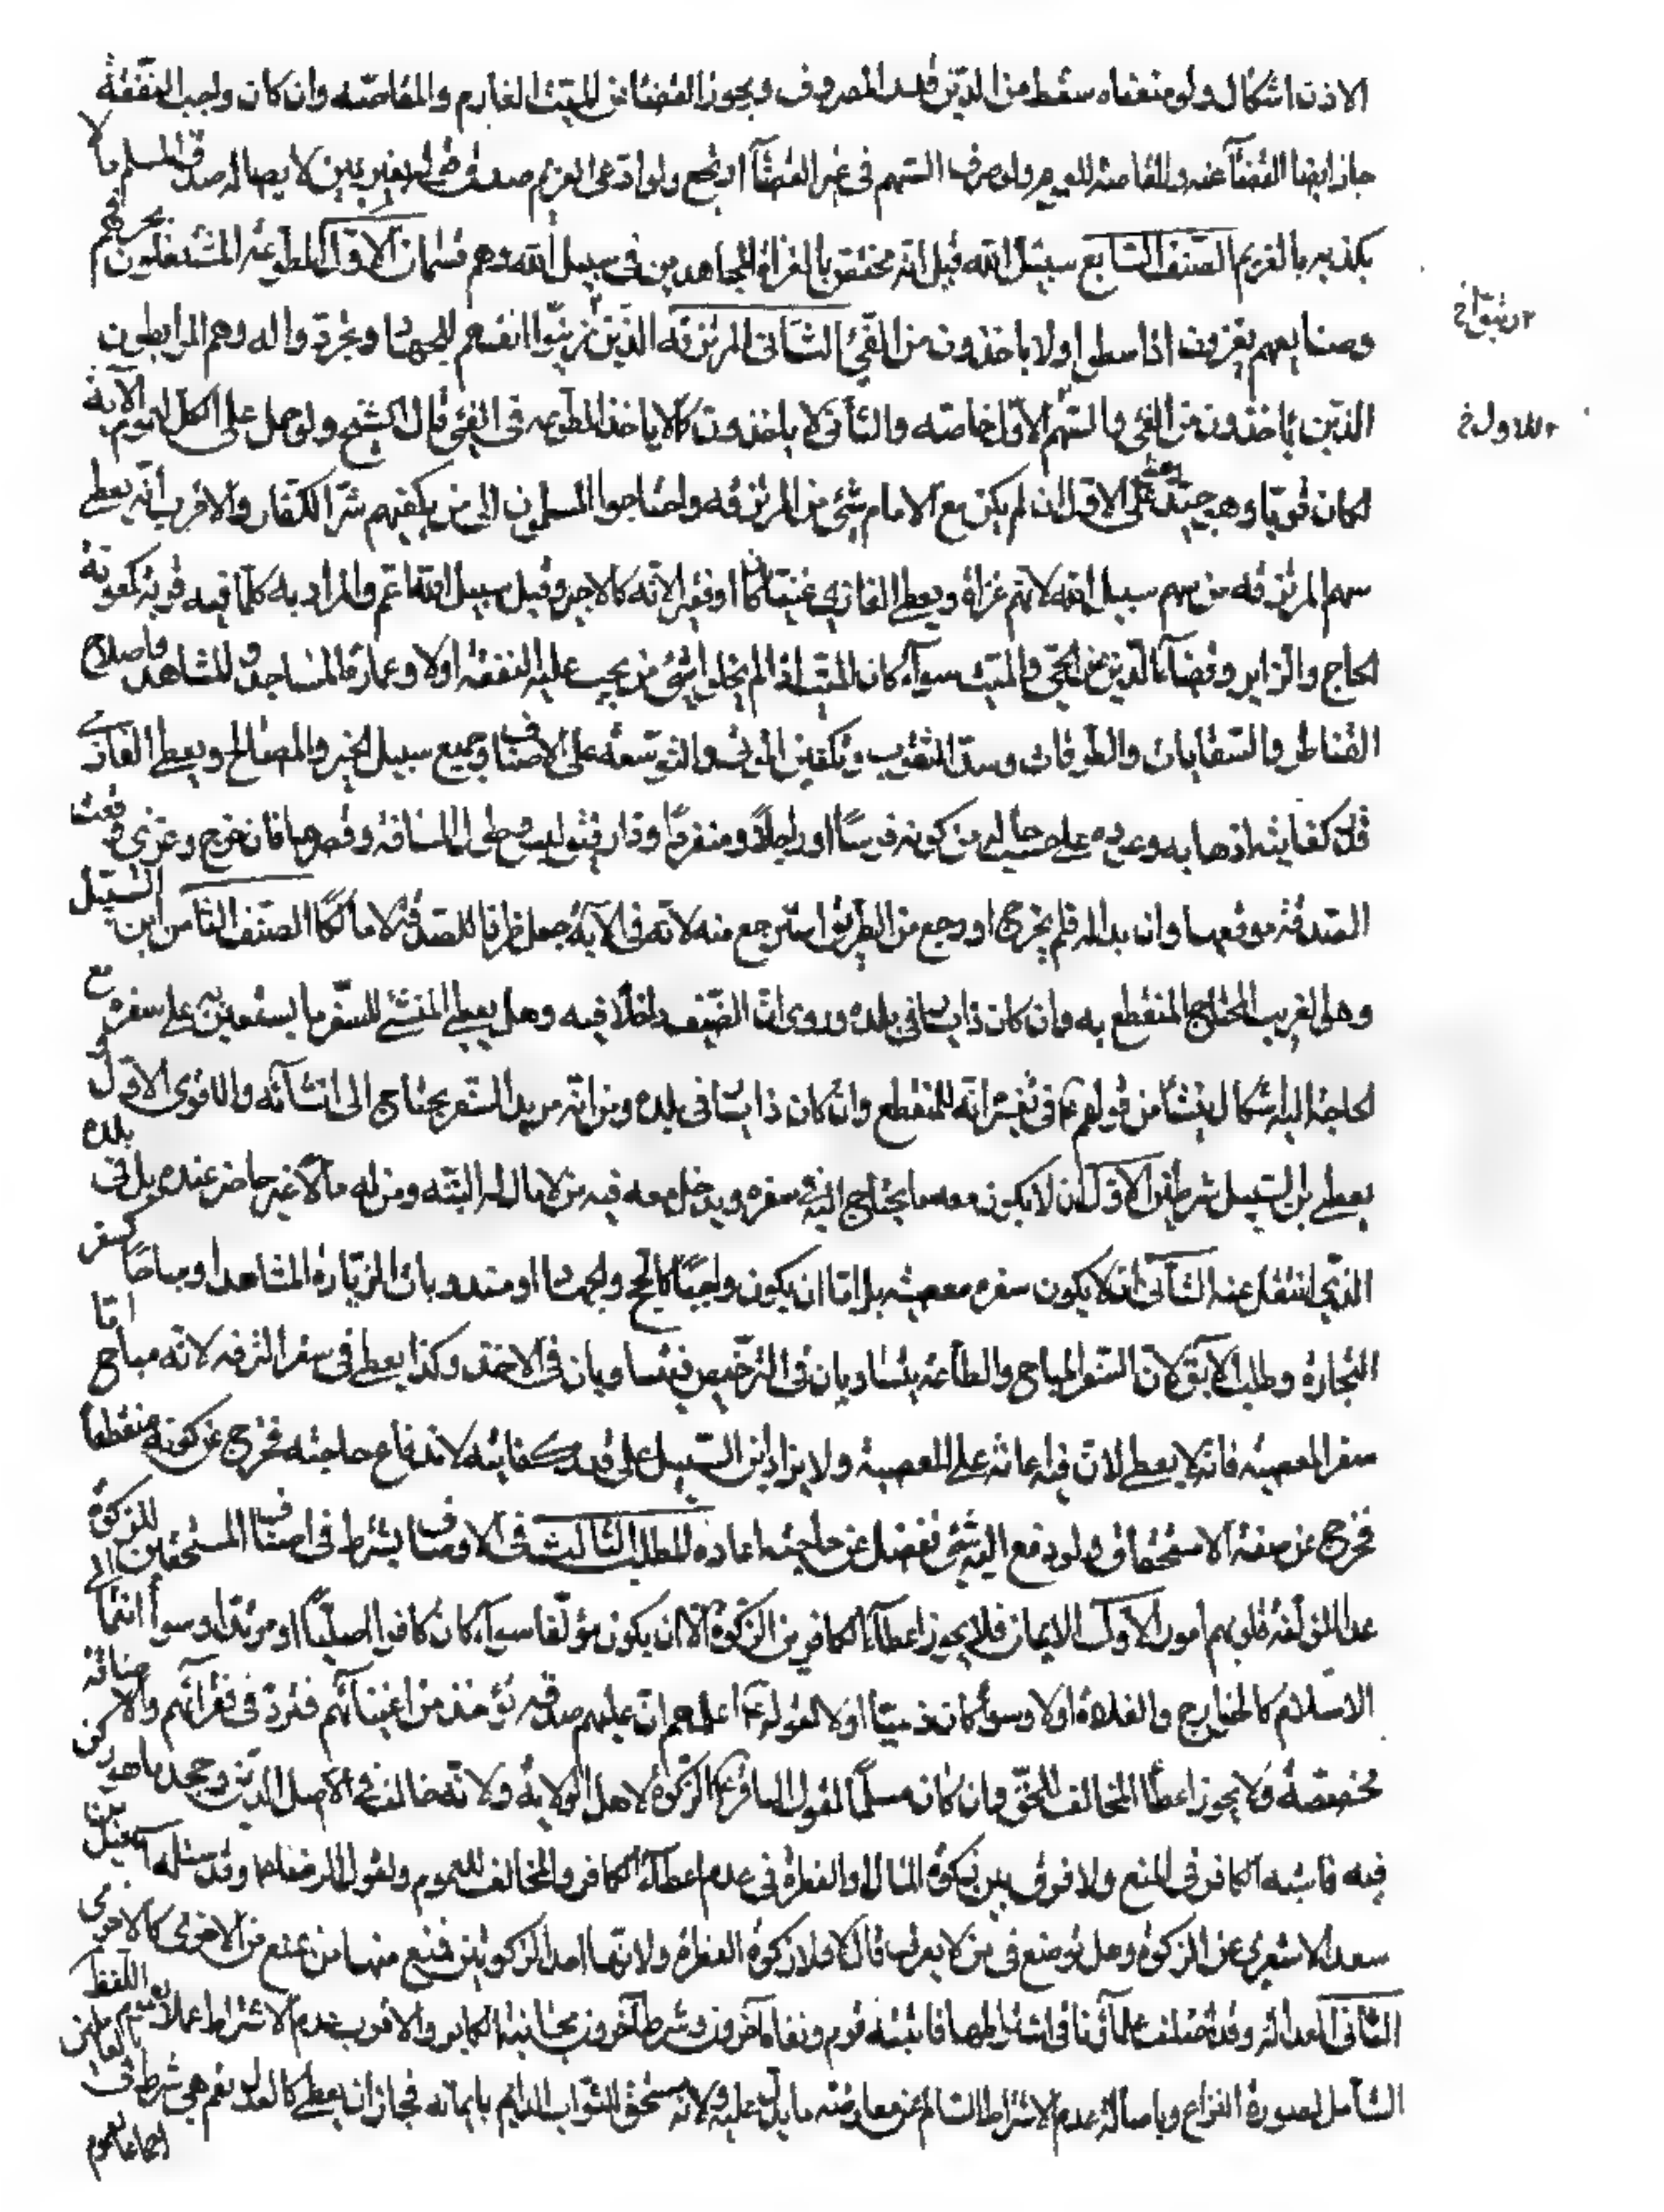 الاذن اشكال ولو منعناه سقط من الدين قدر المصروف ويجوز القضا عن الميت الغارم والمقاصه وان كان واجب النفقة
جاز ايضا القضآ عنه والمقاصة للعموم ولو صرف السهم فى غير القضآ ارتجع ولو ادعى الغريم صدق بغير يمين لاصالة صدق المسلم ما لا
يكذبه الغريم الصنف السابع سبيل الله قيل انه مختص بالغزاة المجاهدين فى سبيل الله وهم قسمان الاول المطوعة المشتغلون بحرفهم
وصنايعهم يغزون اذا نشطوا ولا ياخذون من الفئ الثانى المرتزقة الذين ربتوا انفسهم للجهاد وتجردوا له وهم المرابطون
الذين ياخذون من الفئ والسهم الاول خاصه والثانى لا ياخذون كما لا ياخذ المطوعه فى الفئ قال الشيخ ولو حمل على الكل لعموم الآية
لكان قويا وهو جيد فعلى الاول ان لم يكن مع الامام شئ من المرتزقه واحتاجوا المسلمون الى من يكفيهم شر الكفار والاقرب انه يعطى
سهم المرتزقه من سهم سبيل الله لانهم غزاة ويعطى الغازى غنيا كان او فقيرا لانه كالاجر وقيل سبيل الله اعم والمراد به كلما فيه قربة كمعونة
الحاج والزاير وقضآء الدين عن الحى والميت سوآء كان الميت اذا لم يخلف شئ من يجب عليه النفقة اولا وعمارة المساجد والمشاهد واصلاح
القناطر والسقايات والطرقات وسد الثغور وتكفين الموتى والتوسعة على الاصناف وجميع سبيل الخير والمصالح ويعطى الغازى
قدر كفايته لذهابه وعوده على حسب حاله من كونه فارسا او راجلا ومنفردا وذا رفيق وطول المسافة وقصرها فان خرج وغزى وقعت
الصدقة موقعها وان بدا له فلم يخرج او رجع من الطريق استرجع منه لانه فى الآية جعل ظرفا للصدقة لا مالكا الصنف الثامن ابن السبيل
وهو الغريب المحتاج المنقطع به وان كان ذا يسار فى بلده وروى ان الضيف داخلا فيه وهل يعطى المنشئ للسفر ما يستعين به على سفره مع
الحاجة اليه اشكال ينشا من قولهم ع فى تفسيره انه المنقطع وان كان ذا يسار فى بلده ومن انه مريد السفر يحتاج الى انشآئه والاقوى الاول و
يعطى ابن السبيل بشرطين الاول ان لا يكون معه ما يحتاج اليه فى سفره ويدخل معه فيه من لا مال له البتة ومن له مالا غير حاضر عنده بل فى بلده
الذى انتقل عنه الثانى ان لا يكون سفره معصية بل اما ان يكون واجبا كالحج والجهاد او مندوبا كالزيارة المشاهد او مباحا كسفر
التجارة وطلب الآبق لان السفر المباح والطاعة يتساويان فى الترخيص فيتساويان فى الاخذ وكذا يعطى فى سفر النزهة لانه مباح اما
سفر المعصية فانه لا يعطى لان فيه اعانة على المعصية ولا يزاد ابن السبيل على قدر كفايته لاندفاع حاجته فخرج عن كونه منقطعا
فخرج عن صفة الاستحقاق ولو دفع اليه شئ ففضل عن حاجته اعاده المطلب الثالث فى الاوصاف يشترط فى اصناف المستحقين للزكوة
عدا المؤلفة قلوبهم امور الاول الايمان فلا يجوز اعطآء الكافر من الزكوة الا ان يكون مؤلفا سوآء كان كافرا اصليا او مرتدا وسوآء انتمى الى
الاسلام كالخوارج والغلاة اولا وسوآء كان ذميا او لا لقوله ع اعلمهم ان عليهم صدقة تؤخذ من اغنيآئهم فترد فى فقرآئهم والاضافة
مخصصة ولا يجوز اعطآء المخالف للحق وان كان مسلما لقول الباقر ع الزكوة لاهل الولاية ولانه خالف فى الاصل الدين وجحد ما هو ركن
فيه فاشبه الكافر فى المنع ولا فرق بين زكوة المال والفطرة فى عدم اعطآء الكافر والمخالف للعموم ولقول الرضا ع وقد سئله اسمعيل بن
سعد الاشعرى عن الزكوة وهل توضع فى من لا يعرف قال لا ولا زكوة الفطرة ولانها احد الزكوتين فمنع منها من منع من الاخرى كالاخرى
الثانى العدالة وقد اختلف علمآؤنا فى اشتراطها فاثبته قوم ونفاه آخرون وشرط آخرون مجانبة الكباير والاقرب عدم الاشتراط عملا بعموم اللفظ
الشامل لصورة النزاع وباصالة عدم الاشتراط السالم عن معارضة ما يدل عليه ولانه مستحق للثواب الدايم بايمانه فجاز ان يعطى كالعدل نعم هى شرط فى العاملين
اجماعا لعموم